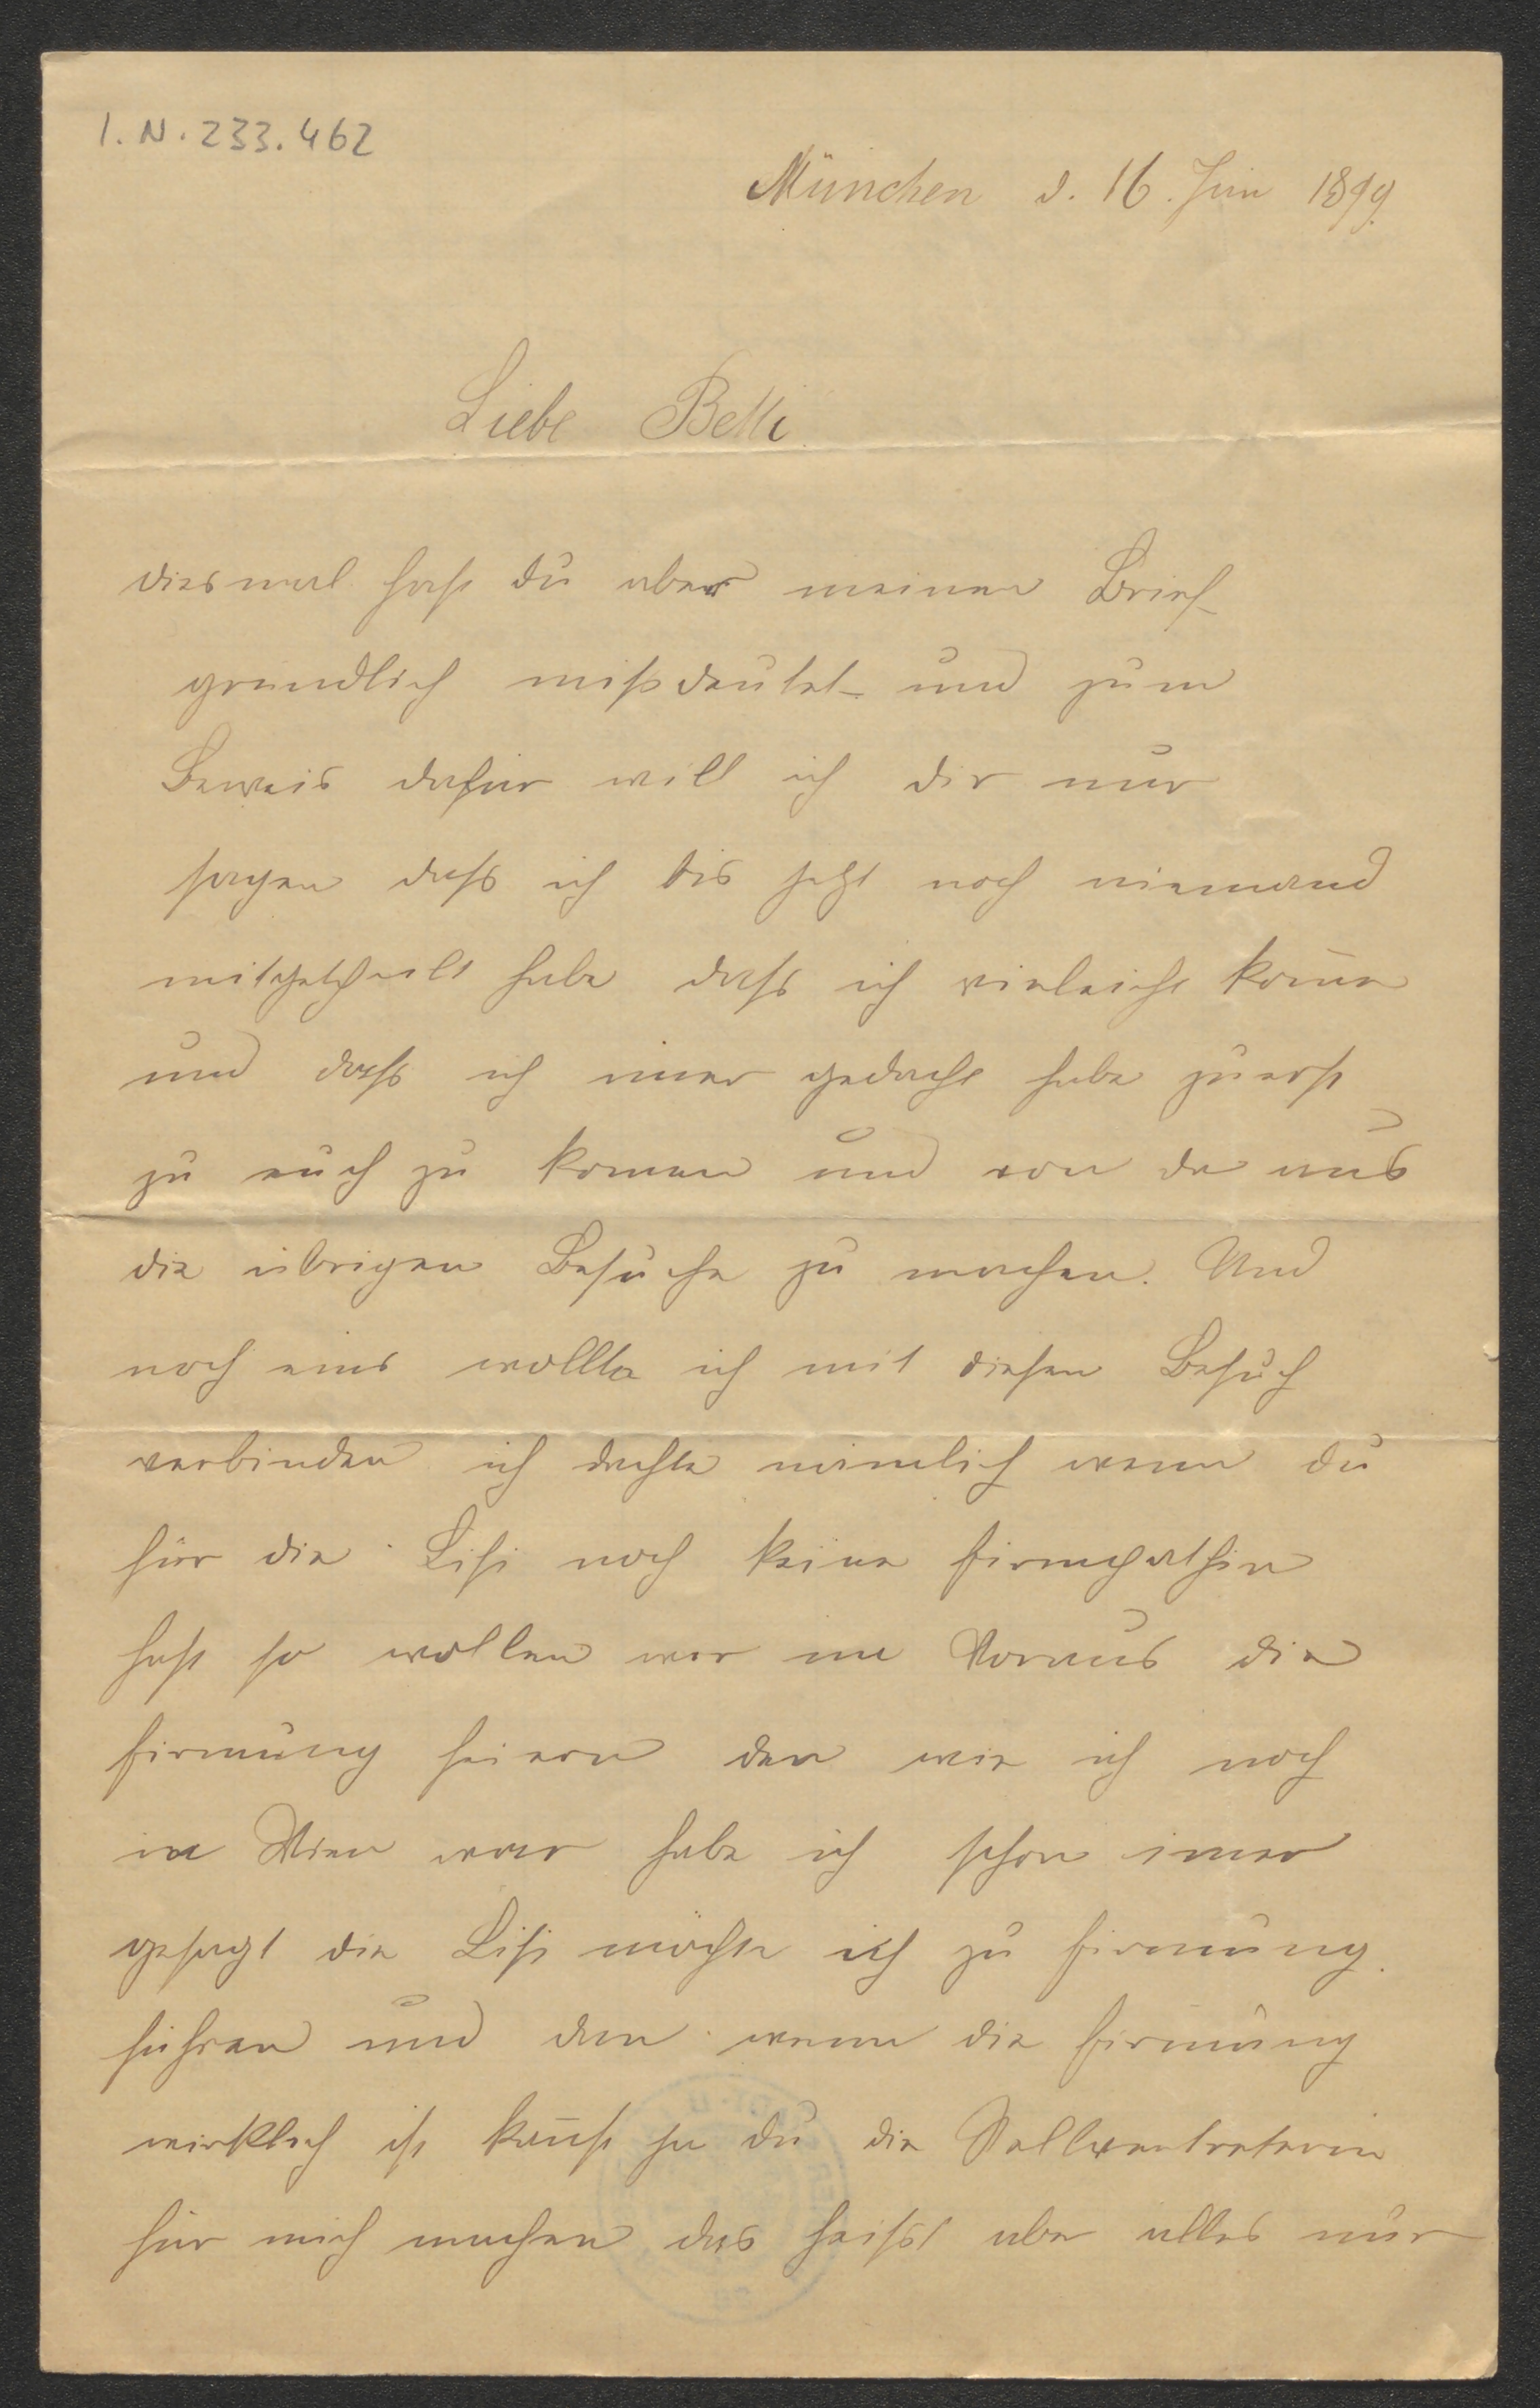 I.N.233.462
München d. 16. Juni 1899.
Liebe Betti.
diesmal hast du aber meinen Brief
gründlich mißdeutet und zum
Beweis dafür will ich dir nur
sagen dass ich bis jetzt noch niemand
mitgetheilt habe dass ich vieleicht kom̄e
und dass ich im̄er gedacht habe zuerst
zu euch zu komen und von da aus
die übrigen Besuche zu machen. Und
noch eins wollte ich mit diesen Besuch
verbinden ich dachte nämlich wenn du
für die Lisi noch keine Firmpathin
hast so wollen wir im Voraus die
Firmung feiern den wie ich noch
in Wien war habe ich schon imer
gesagt die Lisi möchte ich zu Firmung
führen und dan wenn die Firmung
wirklich ist kan̄st ja du die Stellvertreterin
für mich machen das heisst aber alles nur